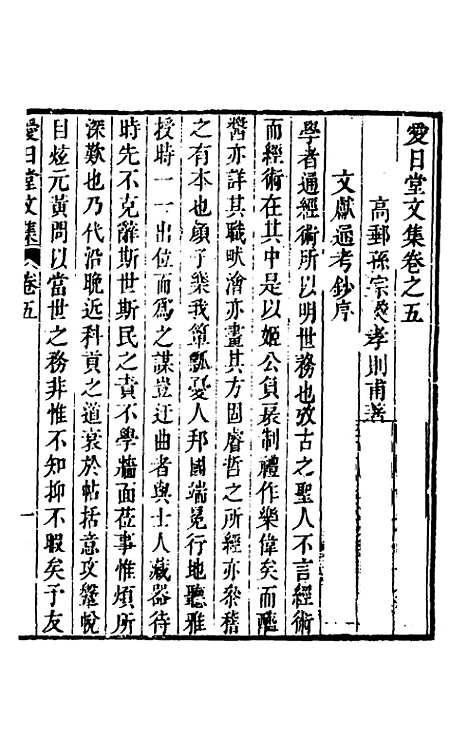 愛日堂文集卷之五
高郵孫宗彝孝則甫著
文獻通考鈔序
學者通經術所以明世務也攷古之聖人不言經術
而經術在其中是以姬公負扆制禮作樂偉矣而醯
醬亦詳其職畎澮亦畫其方固睿哲之所經亦衆稽
之有本也顧子樂我簞瓢憂人邦國端冕行地聽雅
授時一一出位而爲之謀豈迂曲者與士人藏器待
時先不克辭斯世斯民之責不學牆面莅事惟煩所
深歎也乃代沿晚近科貢之道衰於帖括意攻鞶帨
目炫元黃問以當世之務非惟不知抑不暇矣予友
愛日堂文集 卷五 一